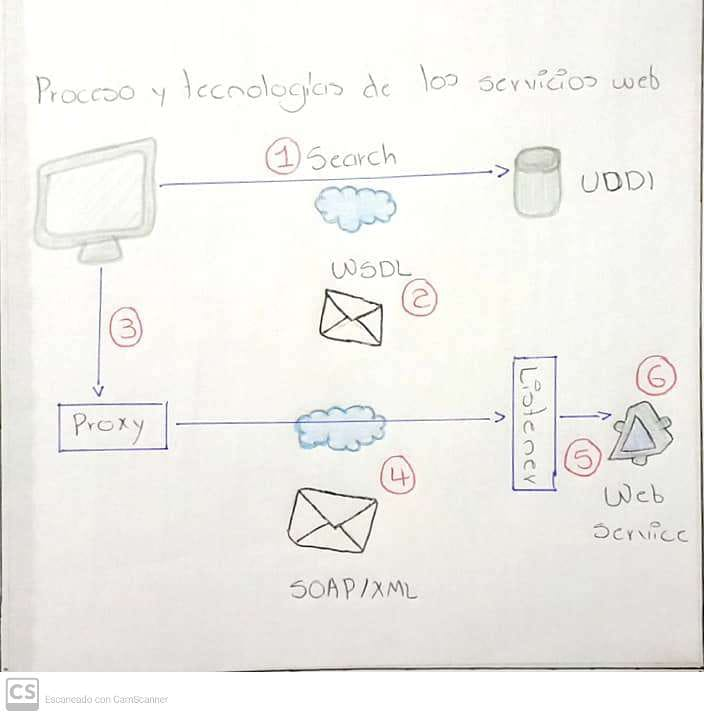 Proceso y tecnologías de los servicios web
1 Search
UDDI
WSDL
2
3
Proxy
Listener
6
5
4
Web
service
SOAP/XML
CS Escaneado con CamScanner